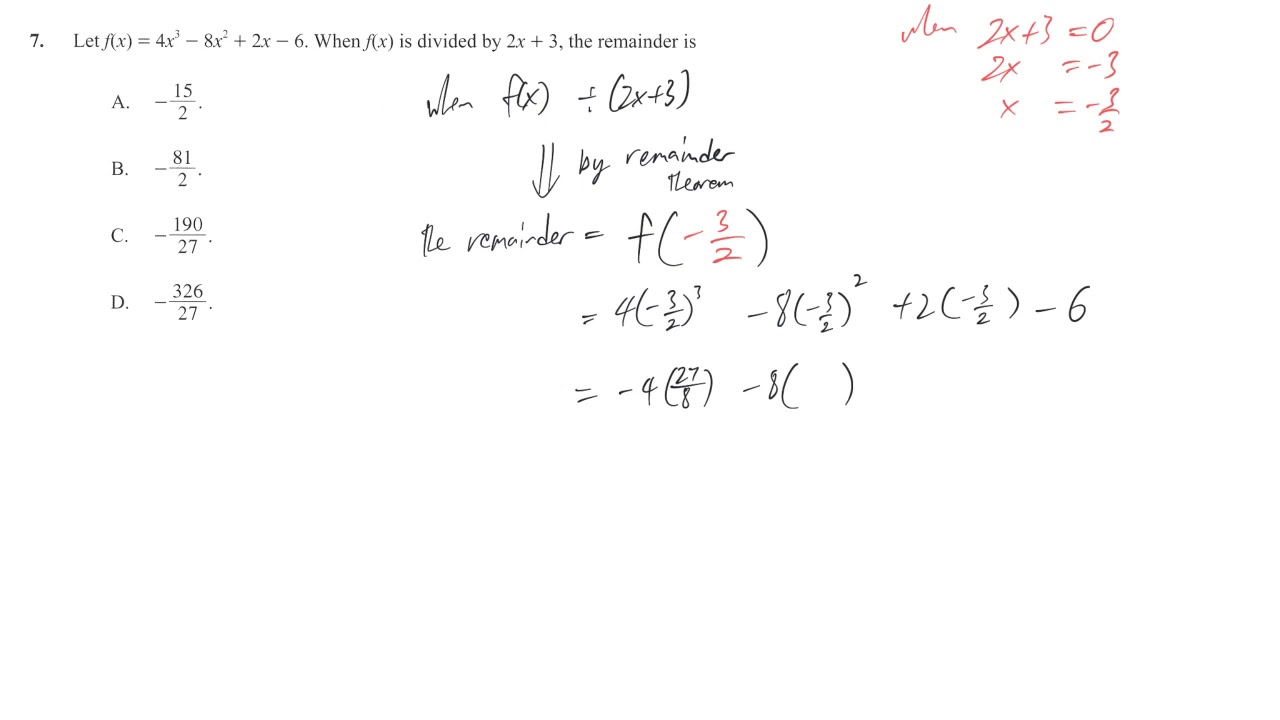 7. Let f(x) = 4x³ − 8x² + 2x − 6. When f(x) is divided by 2x + 3, the remainder is
A. −15/2.
B. −81/2.
C. −190/27.
D. −326/27.
when 2x+3 =0
2x =-3
x =-3/2
when f(x) ÷ (2x+3)
⇓ by remainder theorem
the remainder = f(-3/2)
= 4(-3/2)³ -8(-3/2)² +2(-3/2) -6
= -4(27/8) -8( )